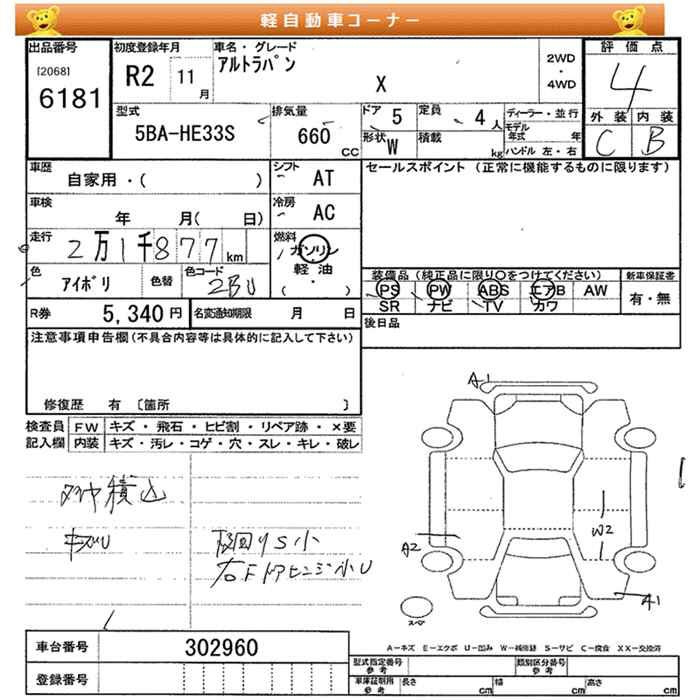 軽自動車コーナー
出品番号 初度登録年月 車名・グレード 2WD・4WD 評価点
[2068] 6181 R2 11月 アルトラパン X 4
型式 5BA-HE33S 排気量 660 CC ドア 5 定員 4人 ディーラー・並行 外装 内装
形状 W 積載 kg モデル年式 年 C B
ハンドル 左・右
車歴 自家用・( ) シフト AT セールスポイント (正常に機能するものに限ります)
車検 年 月( 日) 冷房 AC
走行 2万1千877km 燃料 ガソリン 軽油 ・ ( )
色 アイボリ 色替 色コード 2BU 装備品 (純正品に限り〇をつけてください) 新車保証書
PS PW ABS エアB AW 有・無
SR ナビ TV カワ
R券 5,340円 名変通知期限 月 日 後日品
注意事項申告欄(不具合内容等は具体的に記入して下さい)
修復歴 有 〔箇所 〕
検査員記入欄 FW キズ・飛石・ヒビ割・リペア跡・×要
内装 キズ・汚レ・コゲ・穴・スレ・キレ・破レ
積込
キズU
下回りS小
右Fドアヒンジ小U
A1
W2
A2
A1
スペア
A-キズ E-エクボ U-凹み W-補修跡 S-サビ C-腐食 XX-交換済
車台番号 302960 型式指定番号 参考 類別区分番号 参考
登録番号 車庫証明用 参考 長さ cm 幅 cm 高さ cm